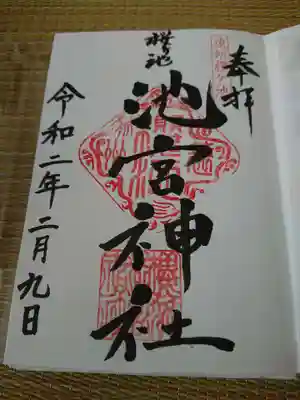 奉拝
桜ヶ池
池宮神社
令和二年二月九日